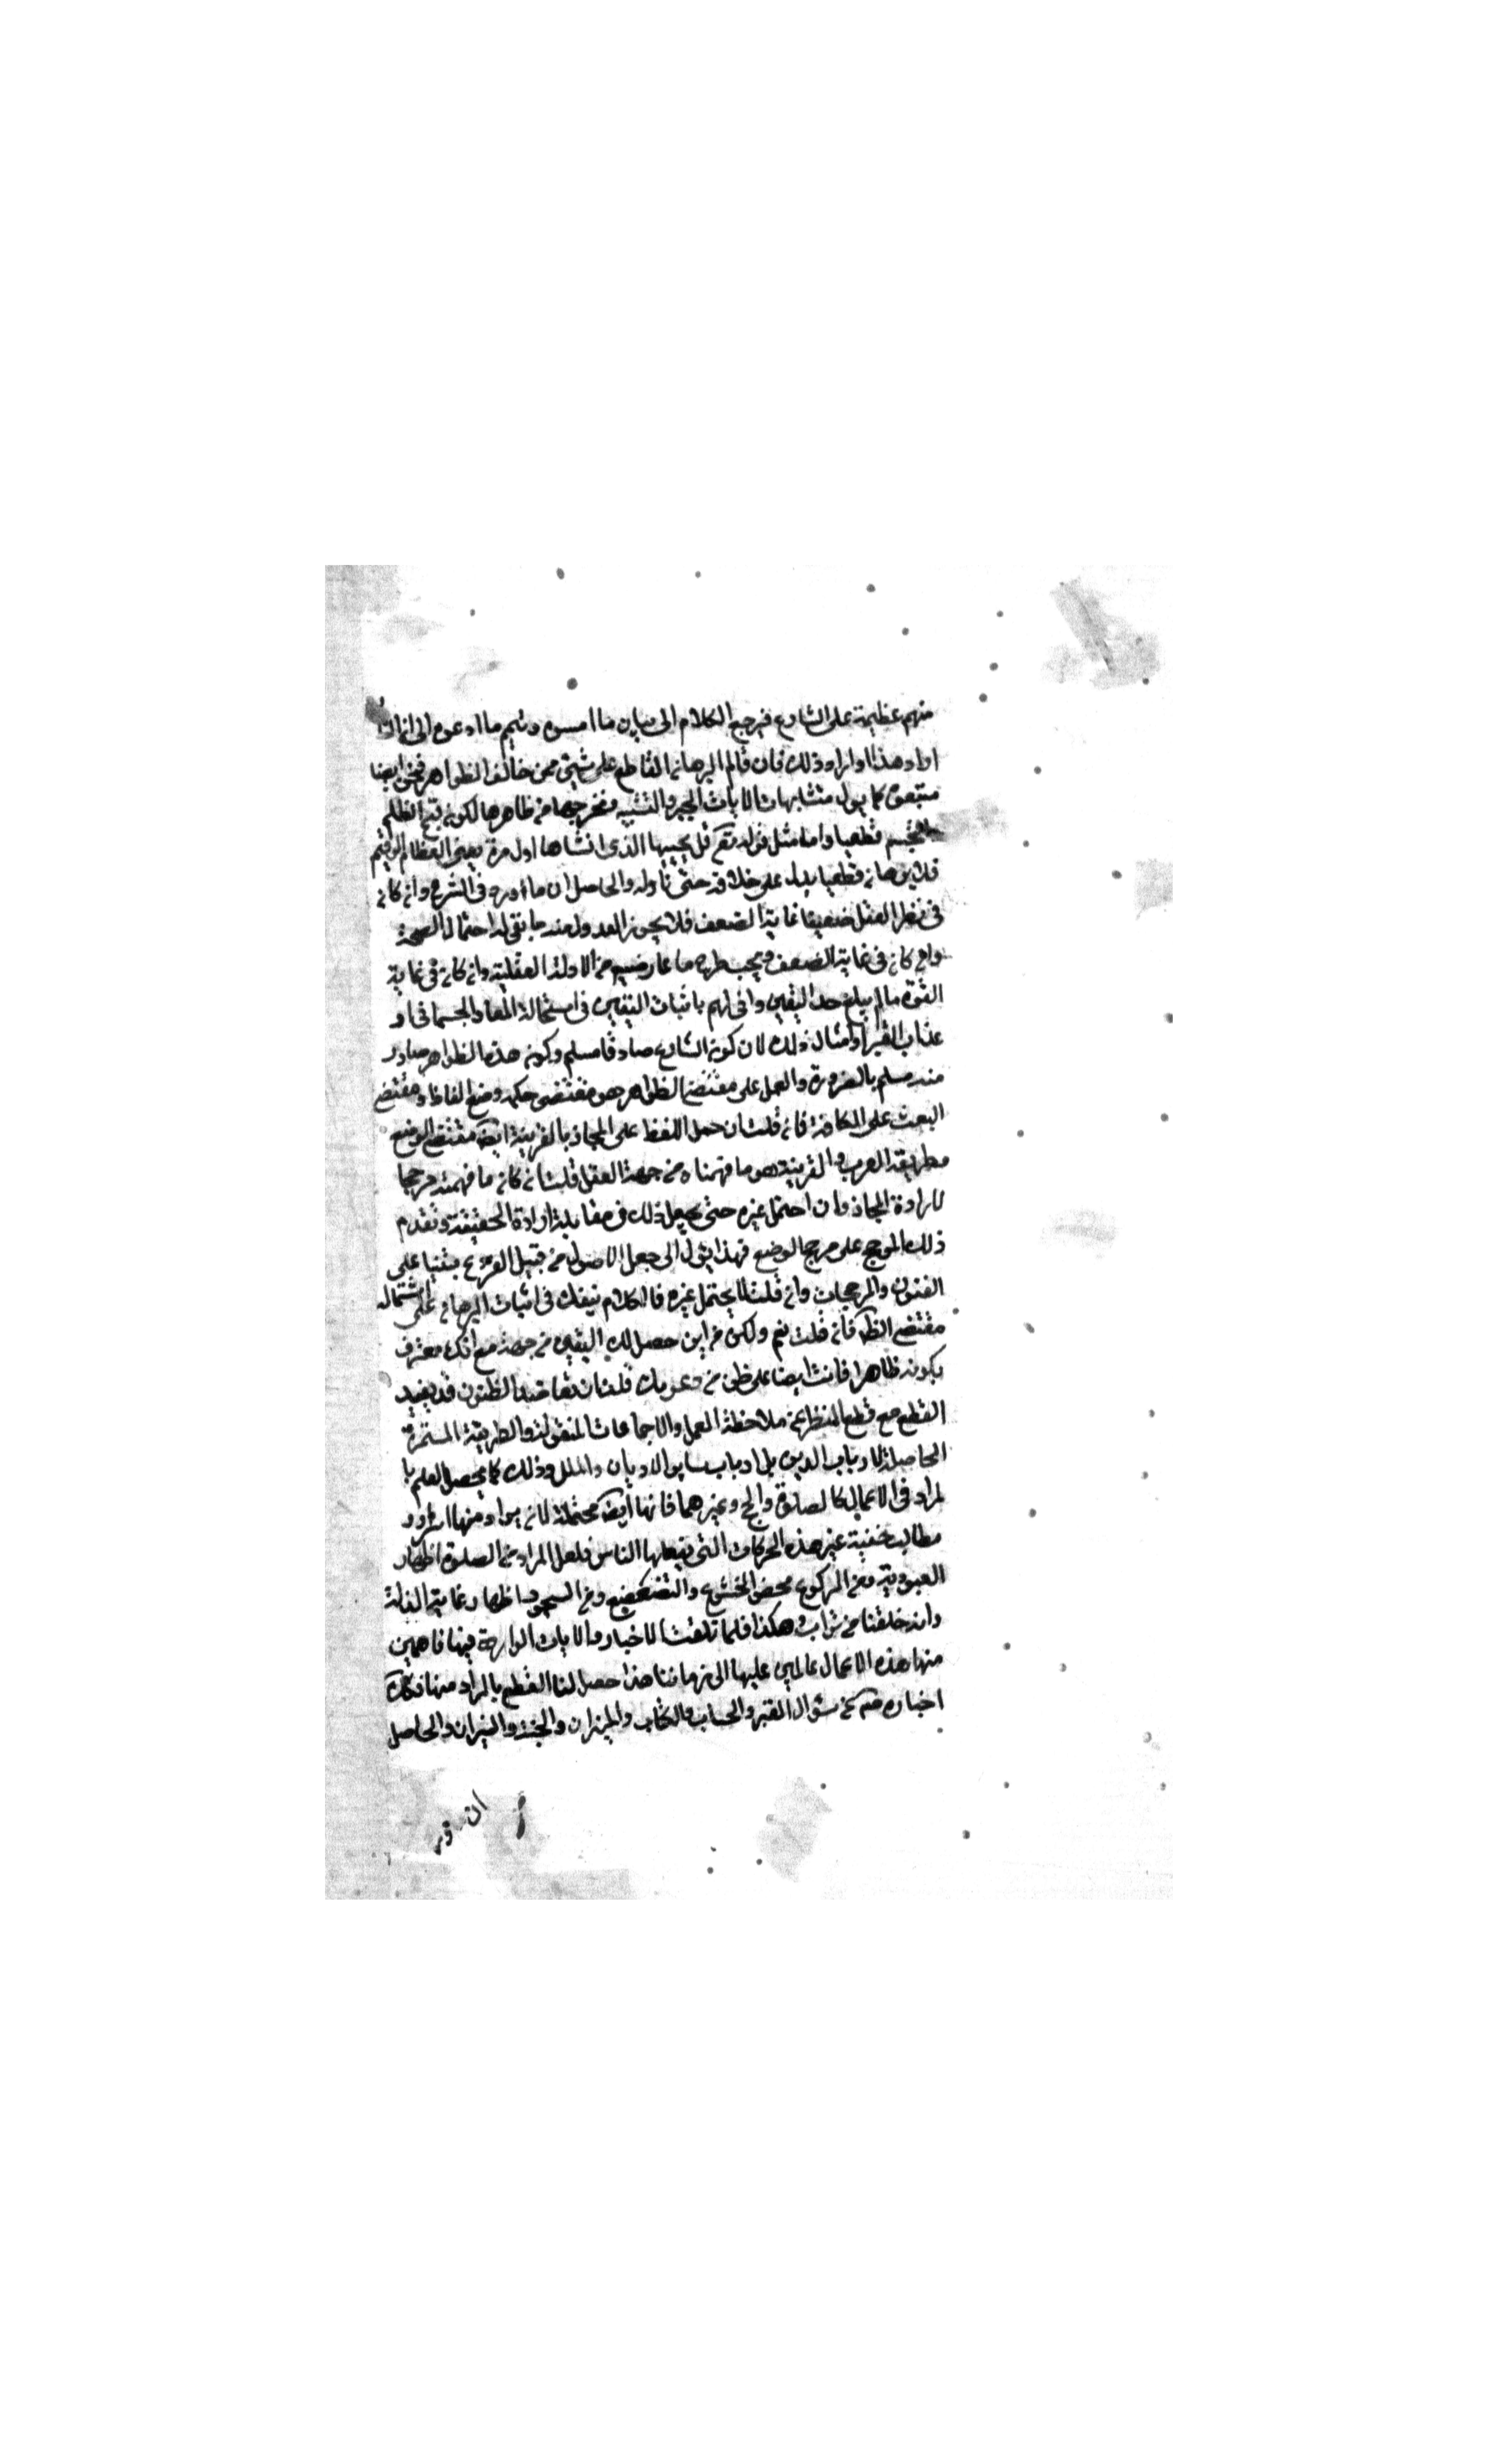 منهم عظيمة على الشارع فيرجع الكلام الى بيان ما اسسوه وتتميم ما ادعوه الى ان
اراد هذا او اراد ذلك فان قام البرهان القاطع على شيئ ممن خالف الظواهر فنحن ايضا
متبعوه كما يول متشابهات الايات الجبر والتشبيه ونخرجها من ظاهرها لكون قبح الظلم
والتجسم قطعيا واما مثل قوله تعم قل يحييها الذى انشاها اول مرة يعنى العظام الرميم
فلا برهان قطعيا يدل على خلافه حتى ناوله والحاصل ان ما ورد فى الشرع وان كان
فى نظر العقل ضعيفا غاية الضعف فلا يجوز العدول عنه ما بقى له احتمال الصحة
وان كان فى غاية الضعف ويجب طرح ما عارضه من الادلة العقلية وان كان فى غاية
القوة ما لم يبلغ حد اليقين وانى لهم باثبات اليقين فى استحالة المعاد الجسمانى او
عذاب القبر او امثال ذلك لان كون الشارع صادقا مسلم وكون هذه الظواهر صادر
منه مسلم بالضرورة والعمل على مقتضى الظواهر هو مقتضى حكمة وضع الفاظ ومقتضى
البعث على الكافة فان قلت ان حمل اللفظ على المجاز بالقرينة ايضا مقتضى الوضع
وطريقة العرب والقرينة هو ما فهمناه من جهة العقل قلت ان كان ما فهمته مرجحا
لارادة المجاز وان احتمل غيره حتى يجعل ذلك فى مقابلة ارادة الحقيقة وتقدم
ذلك المرجح على مرجح الوضع فهذا يئول الى جعل الاصول من قبيل الفروع مبتنيا على
الظنون والمرجحات وان قلت لا يحتمل غيره فالكلام نيفك فى اثبات البرهان على اشتماله
مقتضى الظ فان قلت نعم ولكن من اين حصل لك اليقين من جهة مع انك معترف
بكونه ظاهرا فانت ايضا على ظن من دعويك قلت ان تعاضد الظنون قد يفيد
القطع مع قطع النظر عن ملاحظة العمل والاجماعات المنقولة والطريقة المستمرة
الحاصلة لارباب الدين بل ارباب ساير الاديان والملل وذلك كما يحصل العلم با
لمراد فى الاعمال كالصلوة والحج وغيرهما فانها ايضا محتملة لان يراد منها
مطالب خفية غير هذه الحركات التى يفعلها الناس فلعل المراد من الصلوة اظهار
العبودية ومن الركوع محض الخشوع والتضعضع ومن السجود اظهار غاية الذلة
وانه خلقنا من تراب وهكذا فلما تلقت الاخبار والايات الواردة فيها فاهمين
منها هذه الاعمال عاملين عليها الى زماننا هذا حصل لنا القطع بالمراد منها فكك
اخباره صم عن سؤال القبر والحساب والكتاب والميزان والجنة والنيران والحاصل